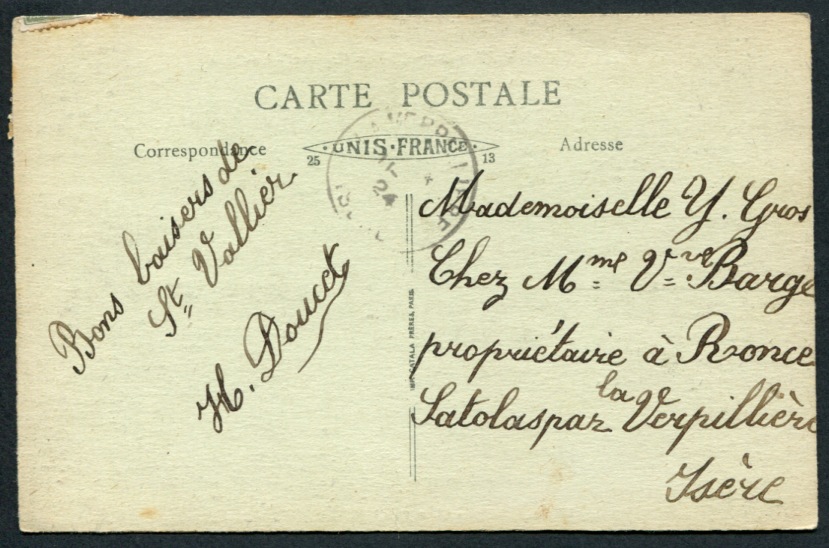 CARTE POSTALE
Correspondance
25 UNIS·FRANCE 13
Adresse
Bons baisers de
St Vallier
H. Doucet
Mademoiselle Y. Gros
Chez Mme Vve Barge
propriétaire à Ronce
Satolas par la Verpillière
Isère
IMP. CATALA FRÈRES, PARIS